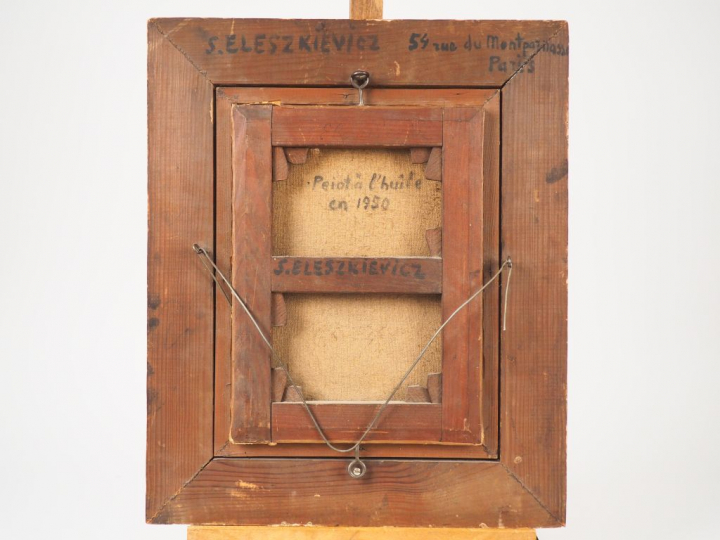 S. ELESZKIEVICZ 54 rue du Montparnasse
Paris
Peint à l'huile
en 1950
S. ELESZKIEVICZ